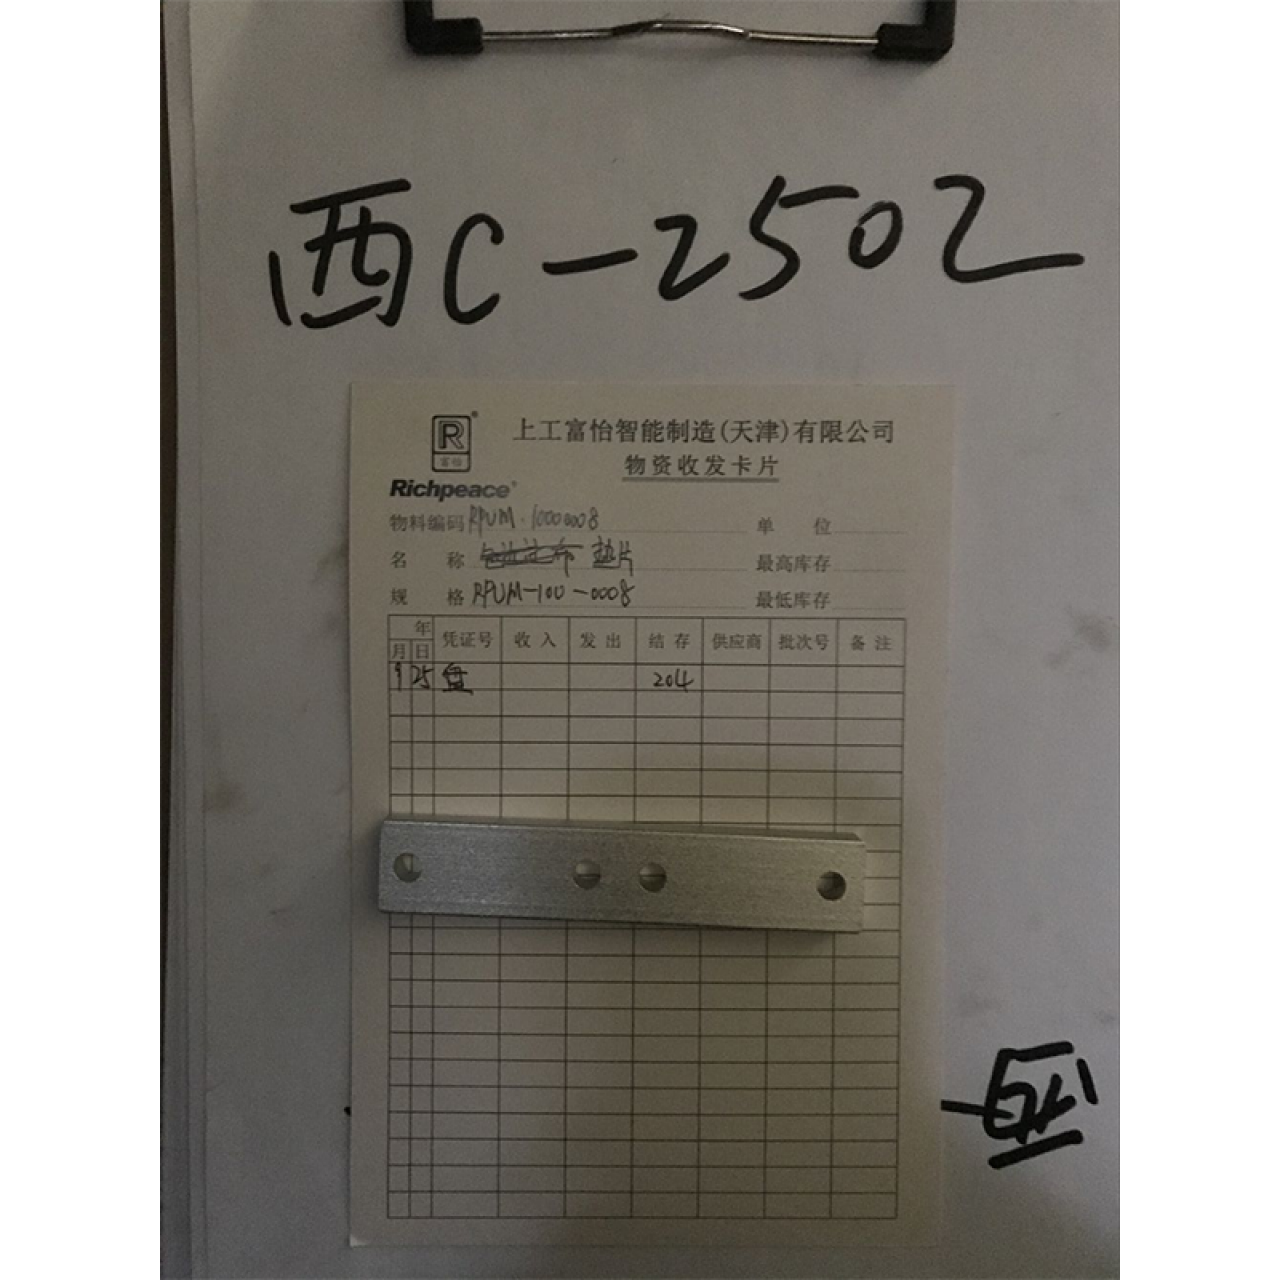 西C-2502
R
富怡
Richpeace
上工富怡智能制造(天津)有限公司
物资收发卡片
物料编码 RPUM.1000008 单位
名称 垫片 最高库存
规格 RPUM-100-0008 最低库存
年 月 日 凭证号 收入 发出 结存 供应商 批次号 备注
9 25 盘 204